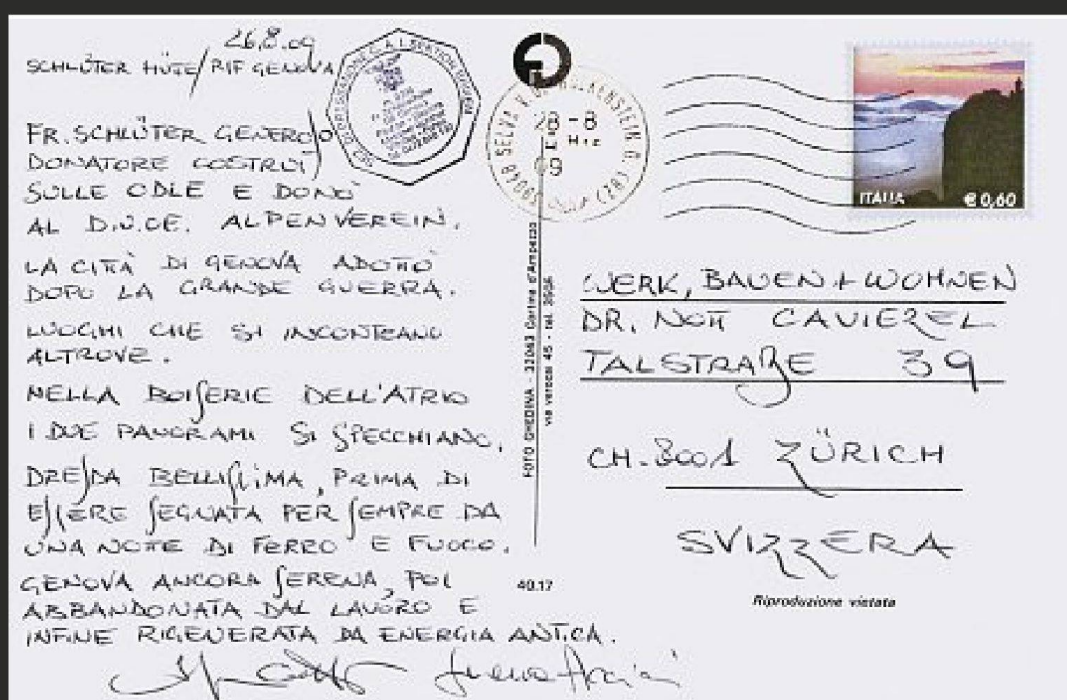 26.8.09
SCHLÜTER HÜTE/RIF GENOVA
FR. SCHLÜTER GENEROSO
DONATORE COSTRUÌ
SULLE ODLE E DONÒ
AL D.U.OE. ALPENVEREIN.
LA CITTÀ DI GENOVA ADOTTÒ
DOPO LA GRANDE GUERRA.
LUOGHI CHE SI INCONTRANO
ALTROVE.
NELLA BOISERIE DELL'ATRIO
I DUE PANORAMI SI SPECCHIANO.
DRESDA BELLISSIMA, PRIMA DI
ESSERE SEGNATA PER SEMPRE DA
UNA NOTTE DI FERRO E FUOCO.
GENOVA ANCORA SERENA, POI
ABBANDONATA DAL LAVORO E
INFINE RIGENERATA DA ENERGIA ANTICA.
28-8
09
ITALIA
€ 0,60
FOTO GHEDINA - 32043 Cortina d'Ampezzo
40.17
WERK, BAUEN + WOHNEN
DR. NOTT CAVIEZEL
TALSTRAßE 39
CH-8001 ZÜRICH
SVIZZERA
Riproduzione vietata